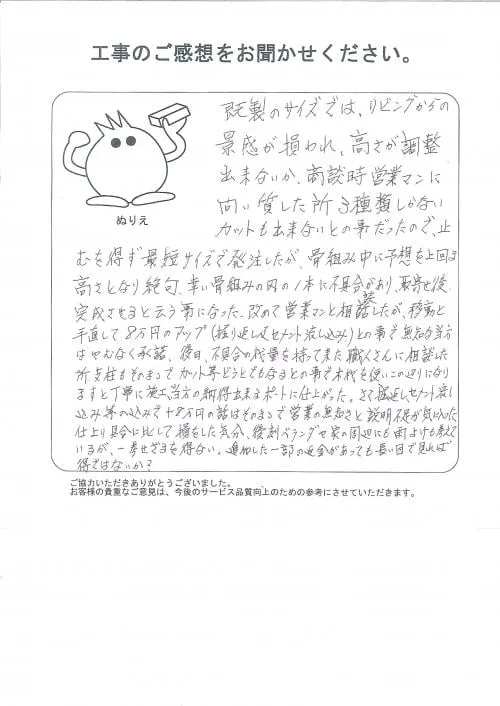 工事のご感想をお聞かせください。
既製のサイズでは、リビングからの
景感が損われ、高さが調整
出来ないか、商談時営業マンに
向い質した所3種類しかない
カットも出来ないとの事だったので、止
ぬりえ
むを得ず最短サイズで発注したが、骨組み中に予想を上回る
高さとなり絶句、幸い骨組みの内の1本に不具合があり、取寄せ後
完成させると云う事になった。改めて営業マンと相談したが、移動と
手直しで8万円のアップ(掘り返しセメント流し込み)との事で無知な当方
はやむなく承諾、後日、不具合の代量を持って来た職人さんに相談した
所支柱もそのままでカット等どうとでもなるとの事で木枕を使いこの辺りになり
ますと丁寧に施工当方の納得出来るポートに仕上がった。さて掘返しセメント流し
込み等の込みで+8万円の話はそのままで営業の無知さと説明不足が気になった
仕上り具合に比して損をした気分、後刻ベランダや家の周辺にも雨よけも考えて
いるが、一考せざるを得ない。追加した一部の返金があっても長い目で見れば
得ではないか?
ご協力いただきありがとうございました。
お客様の貴重なご意見は、今後のサービス品質向上のための参考にさせていただきます。